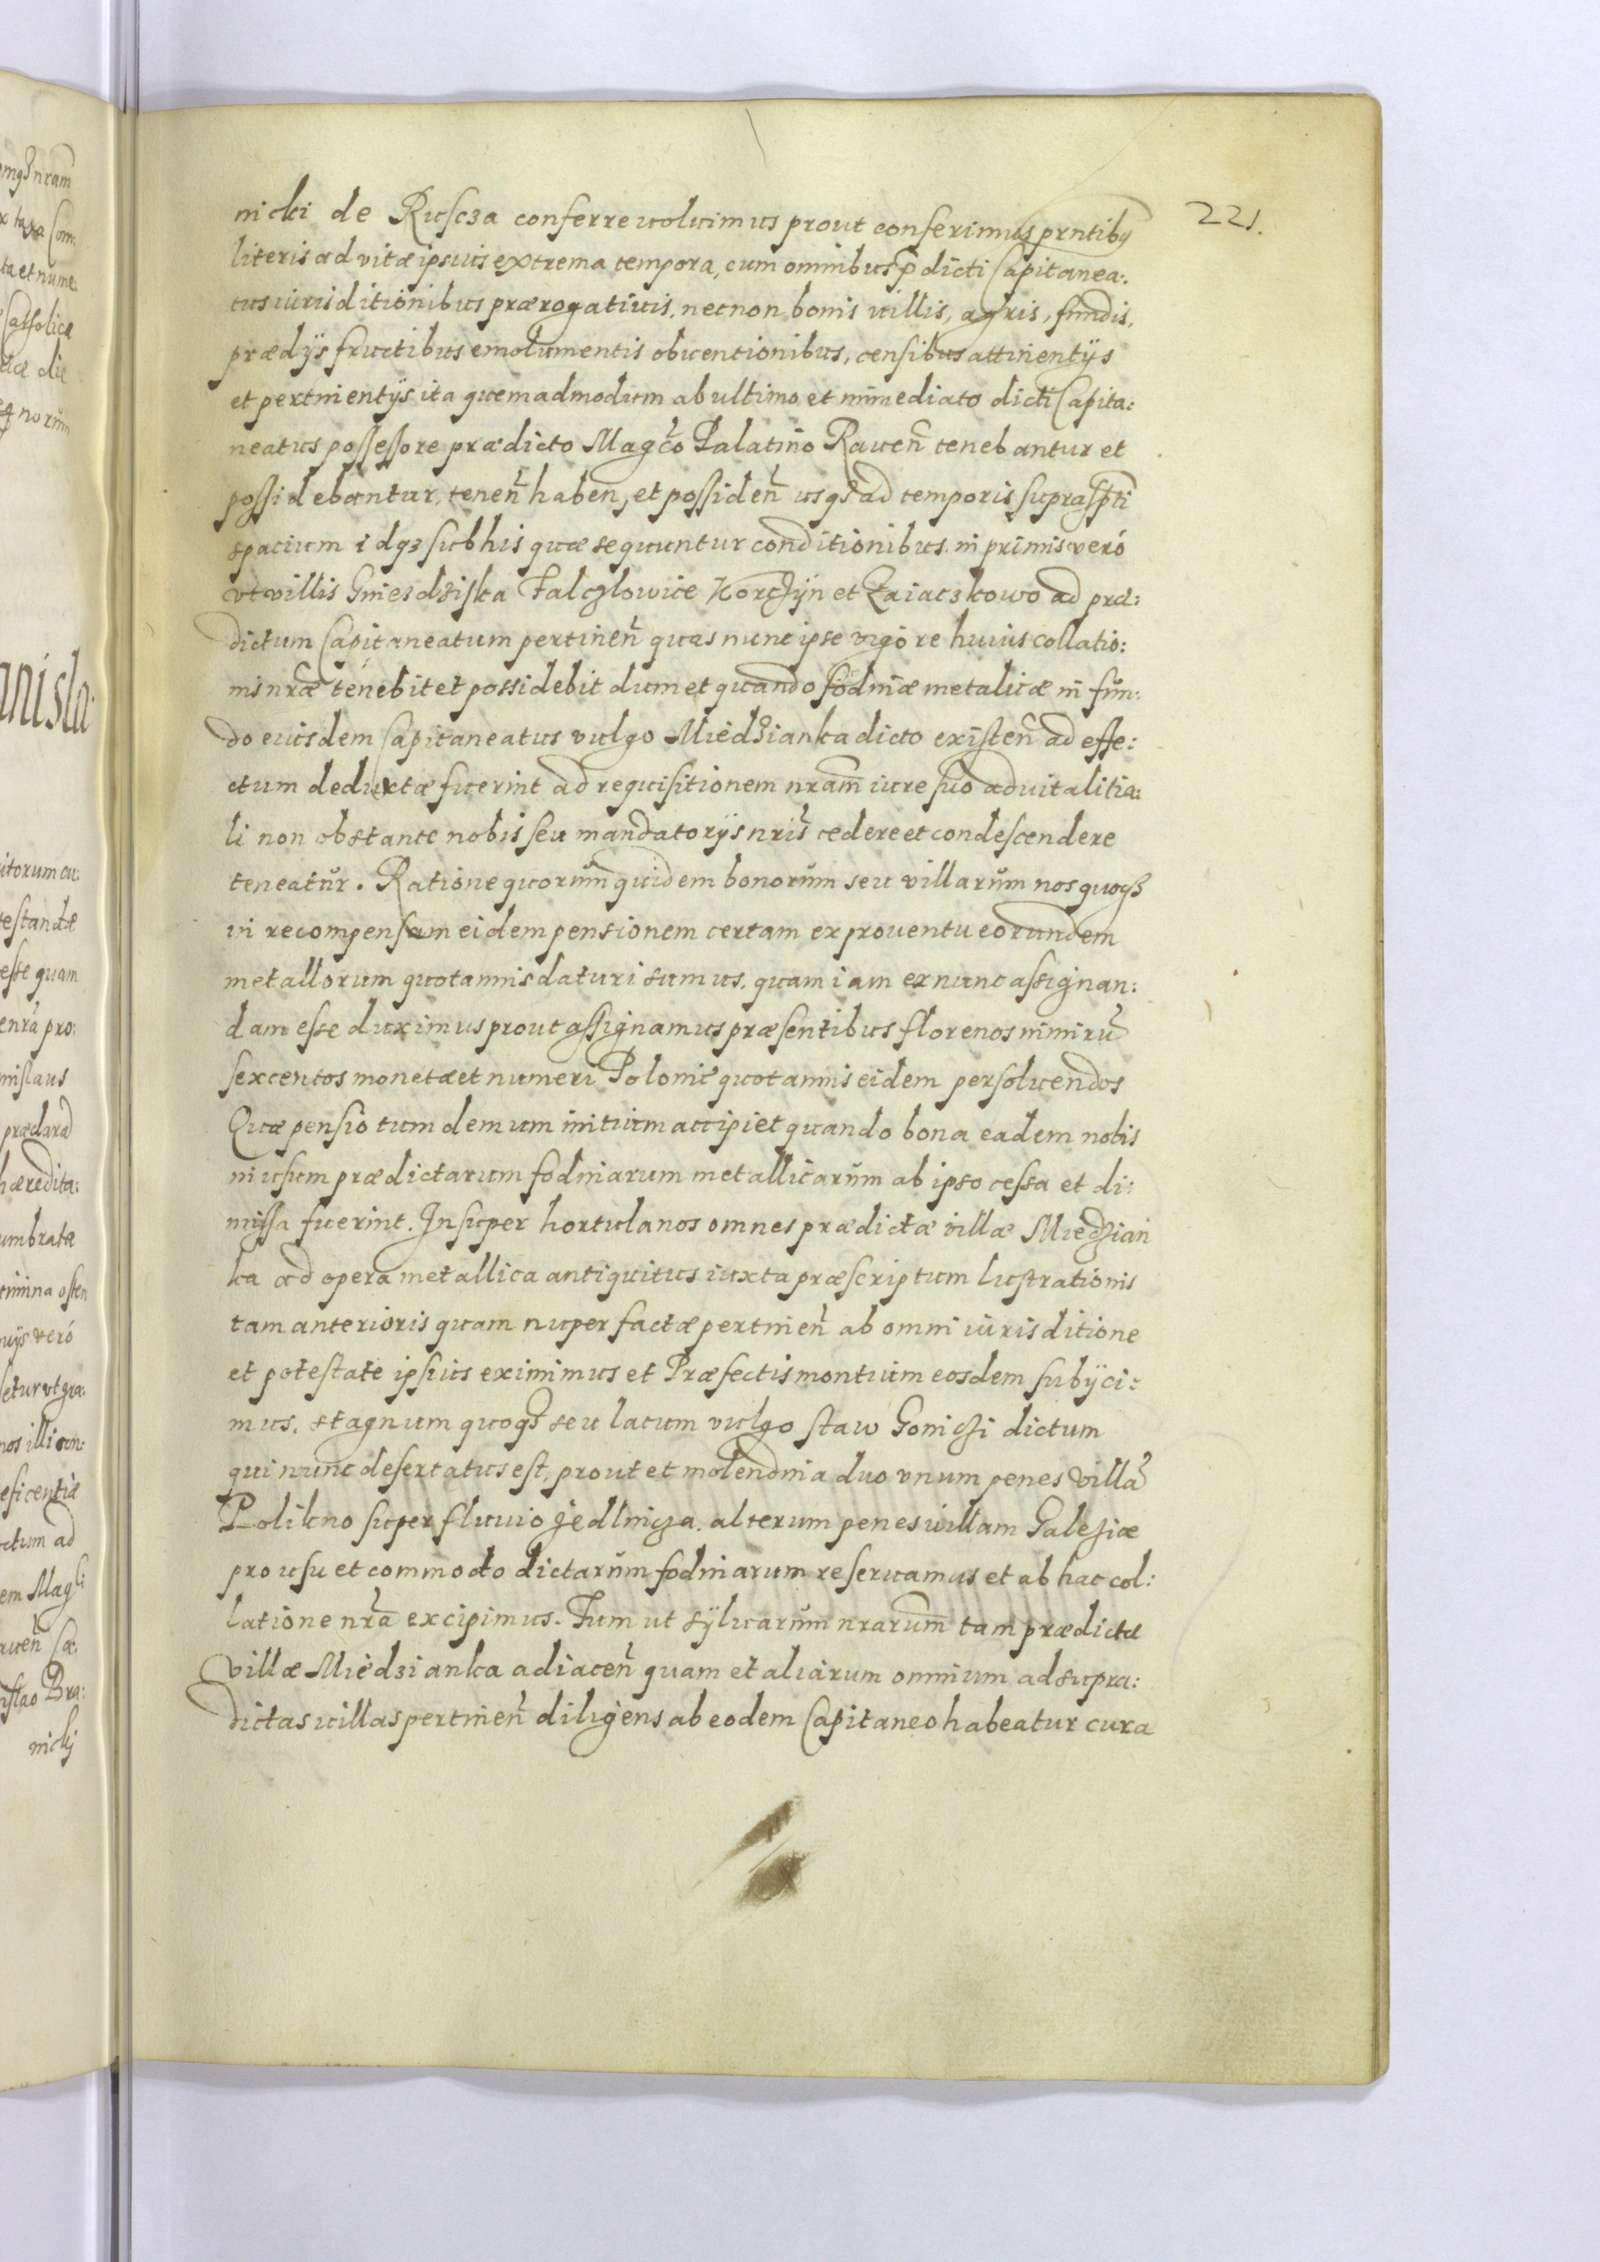 221.
nicki de Rusc3a conferre uoluimus prout conferimus prntibq
literis ad vitæ ipsuis extrema tempora, cum omnibus p̃dicti Capitanea:
tus iurisditionibus prærogatiuis, necnon bonis uillis, agris, fundis,
prædijs fructibus emolumentis obuentionibus, censibus attinentijs
et pertinentijs ita quemadmodum ab ultimo et immediato dicti Capita:
neatus possessore prædicto Magco Palatino Rauen̄ tenebantur et
possidebantur, tenen̄ haben, et possiden̄ usq3 ad temporis suprasc̃pti
spacium idq3 sub his quæ sequuntur conditionibus. in primis veró
vt villis Gnie3d3iska Falczlowice Korczÿn et Zaiac3kowo ad præ:
dictum Capitaneatum pertinen̄ quas nunc ipse uigore huius collatio:
nis nræ tenebit et possidebit dum et quando fodinæ metalicæ in fun:
do eiusdem Capitaneatus vulgo Mied3ianka dicto existen̄ ad effe:
ctum deductæ fuerint ad requisitionem nram iure suo aduitalitia:
li non obstante nobis seu mandatorijs nris cedere et condescendere
teneatur. Ratione quorum quidem bonorum seu villarum nos quoq3
in recompensam eidem pensionem certam ex prouentu eorundem
metallorum quotannis daturi sumus, quam iam ex nunc assignan:
dam esse duximus prout assignamus præsentibus florenos nimirũ
sexcentos monetæ et numeri Polonic̃ quotannis eidem persoluendos
Quæ pensio tum demum initium accipiet quando bona eadem nobis
in usum prædictarum fodinarum metallicarum ab ipso cessa et di:
missa fuerint. Insuper hortulanos omnes prædictæ uillæ Miedzian
ka ad opera metallica antiquitus iuxta præscriptum lustrationis
tam anterioris quam nuper factæ pertinen̄ ab omni iurisditione
et potestate ipsius eximimus et Præfectis montium eosdem subijci:
mus. stagnum quoq3 seu lacum vulgo staw Goniczi dictum
qui nunc desertatus est, prout et molendina duo vnum penes villã
Polikno super fluuio Jedlnicza. alterum penes uillam Galeziæ
pro usu et commodo dictarum fodinarum reseruamus et ab hac col:
latione nra excipimus. Tum ut sÿluarum nrarum tam prædictæ
villæ Mied3ianka adiacen̄ quam et aliarum omnium ad supra:
dictas uillas pertinen̄ diligens ab eodem Capitaneo habeatur cura